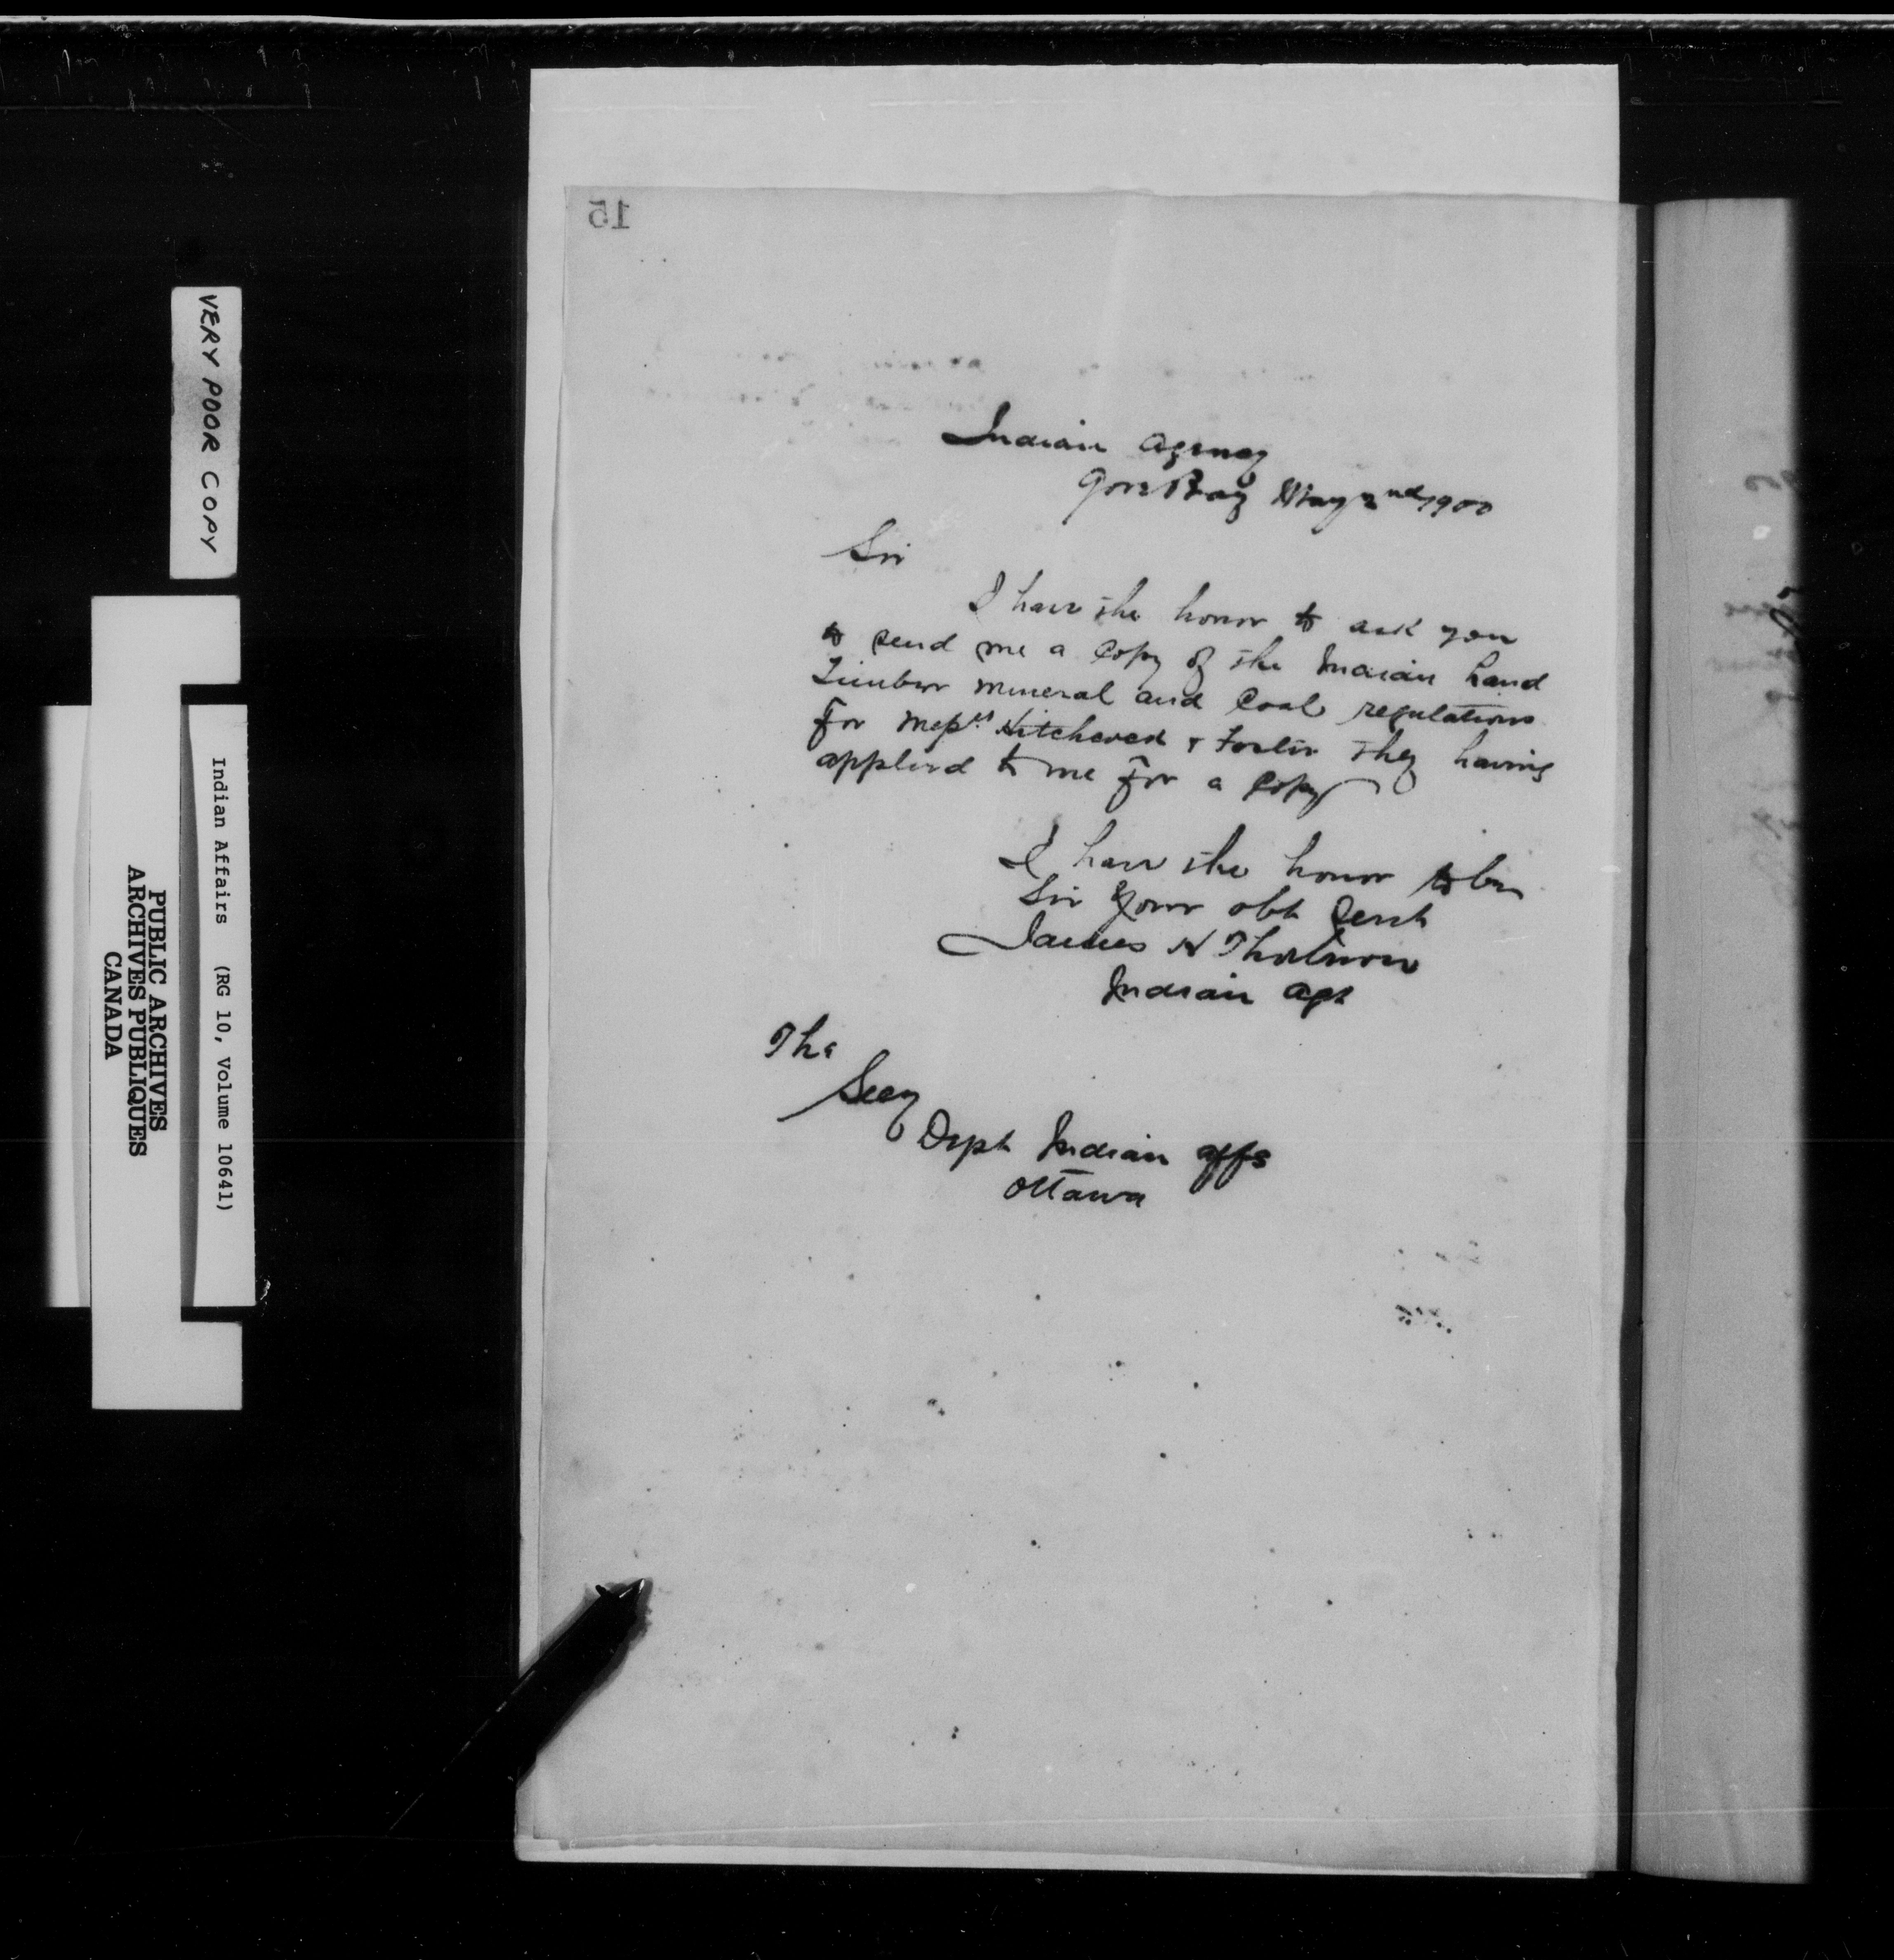 15
Indian Agency
Gore Bay May 2nd 1900
Sir
I have the honor to ask you
to send me a Copy of the Indian Land
Timber mineral and Coal regulations
for Messrs & Foster They having
applied to me for a Copy
I have the honor to be
Sir Your obt Servt
James H Thorburn
Indian Agt
The
Secy
Dept Indian Affs
Ottawa
VERY POOR COPY
Indian Affairs (RG 10, Volume 10641)
PUBLIC ARCHIVES
ARCHIVES PUBLIQUES
CANADA